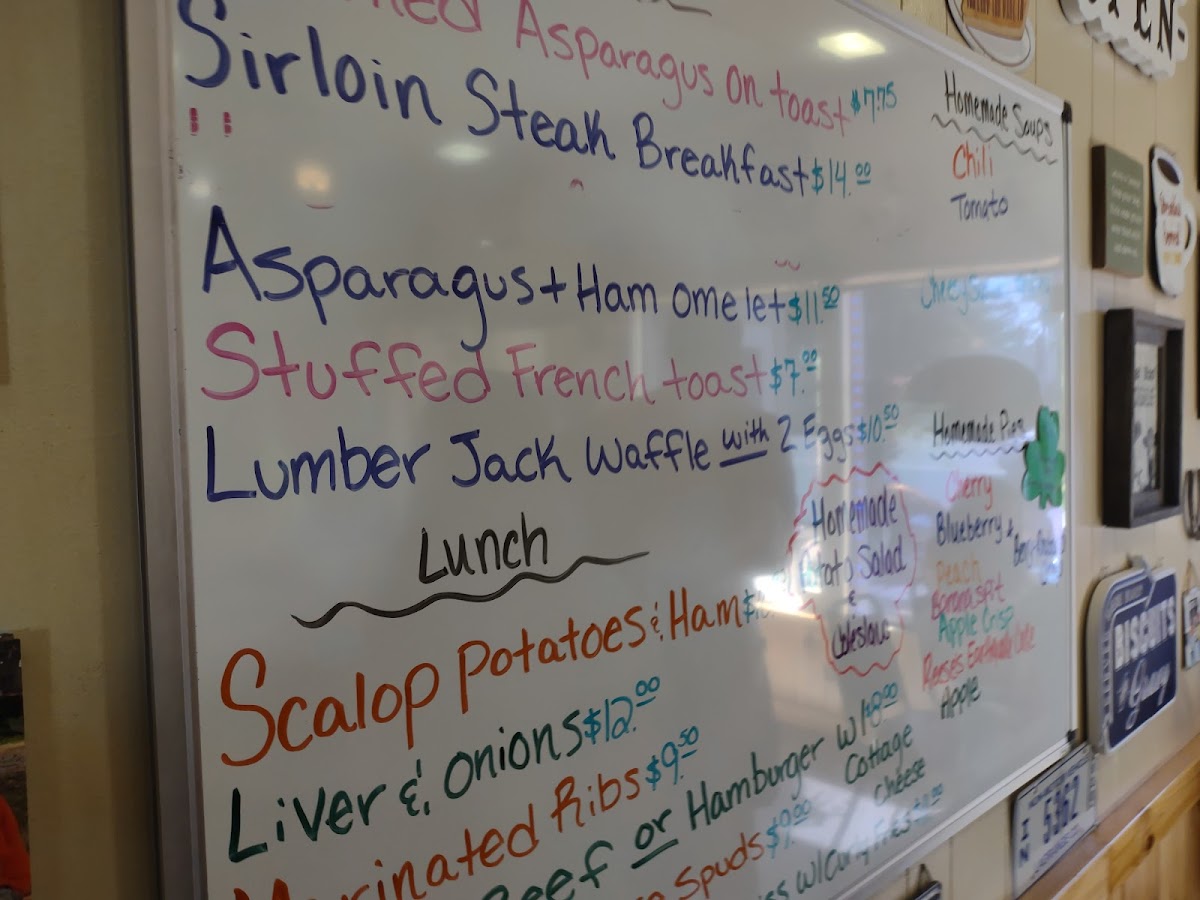 Asparagus on toast $7.75
Sirloin Steak Breakfast $14.00
!!
Asparagus + Ham omelet $11.50
Stuffed French toast $7.00
Lumber Jack Waffle with 2 Eggs $10.50
Lunch
Scalop Potatoes & Ham
Liver & Onions $12.00
Marinated Ribs $9.50
Beef or Hamburger w/ $8.00
Cottage
Cheese
Spuds $9.00
Homemade
Potato Salad
&
Coleslaw
Homemade Soups
Chili
Tomato
Homemade Pies
Cherry
Blueberry &
Peach
Banana Split
Apple Crisp
Reese's Earthquake Cake
Apple
BISCUITS
& Gravy
IN 5362